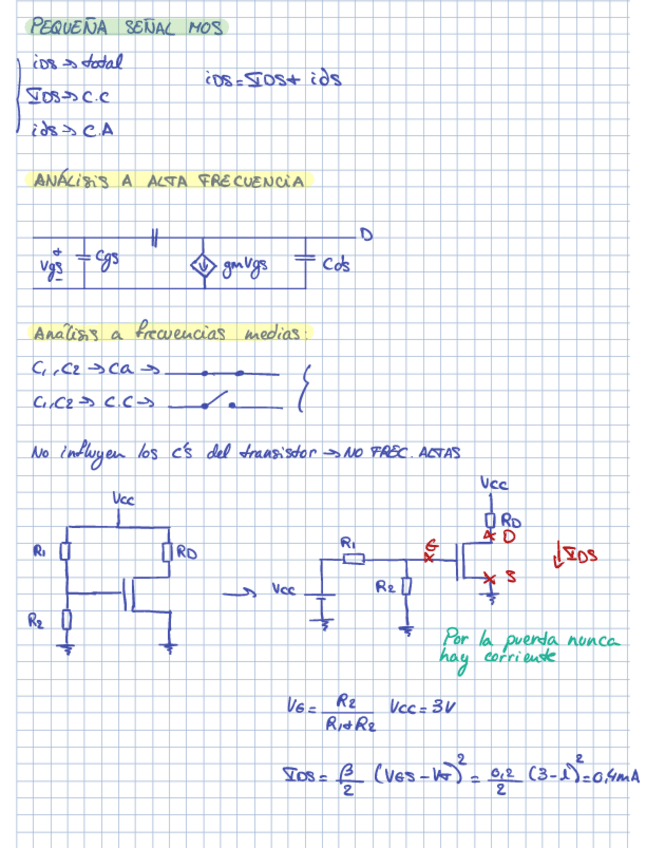 PEQUEÑA SEÑAL MOS
iDS → total
IDS → C.C
ids → C.A
iDS = IDS + ids
ANÁLISIS A ALTA FRECUENCIA
D
+
Vgs
-
Cgs
gmVgs
Cds
Analisis a frecuencias medias:
C1, C2 → CA →
C1, C2 → C.C →
No influyen los c's del transistor → NO FREC. ALTAS
Vcc
R1
RD
R2
→
Vcc
R1
R2
G
Vcc
RD
D
S
↓ IDS
Por la puerta nunca
hay corriente
VG = R2 / (R1+R2) Vcc = 3V
IDS = β/2 (VGS - VT)² = 0,2/2 (3-1)² = 0,4mA